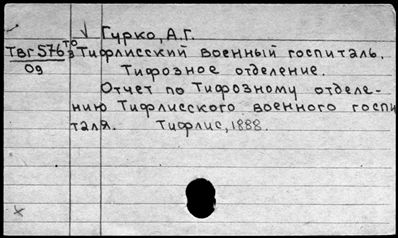 √ Гурко, А.Г.
Твг 576 Тифлисский военный госпиталь.
09 Тифозное отделение.
Отчет по Тифозному отделе-
нию Тифлисского военного госпи
таля. Тифлис, 1888.
х